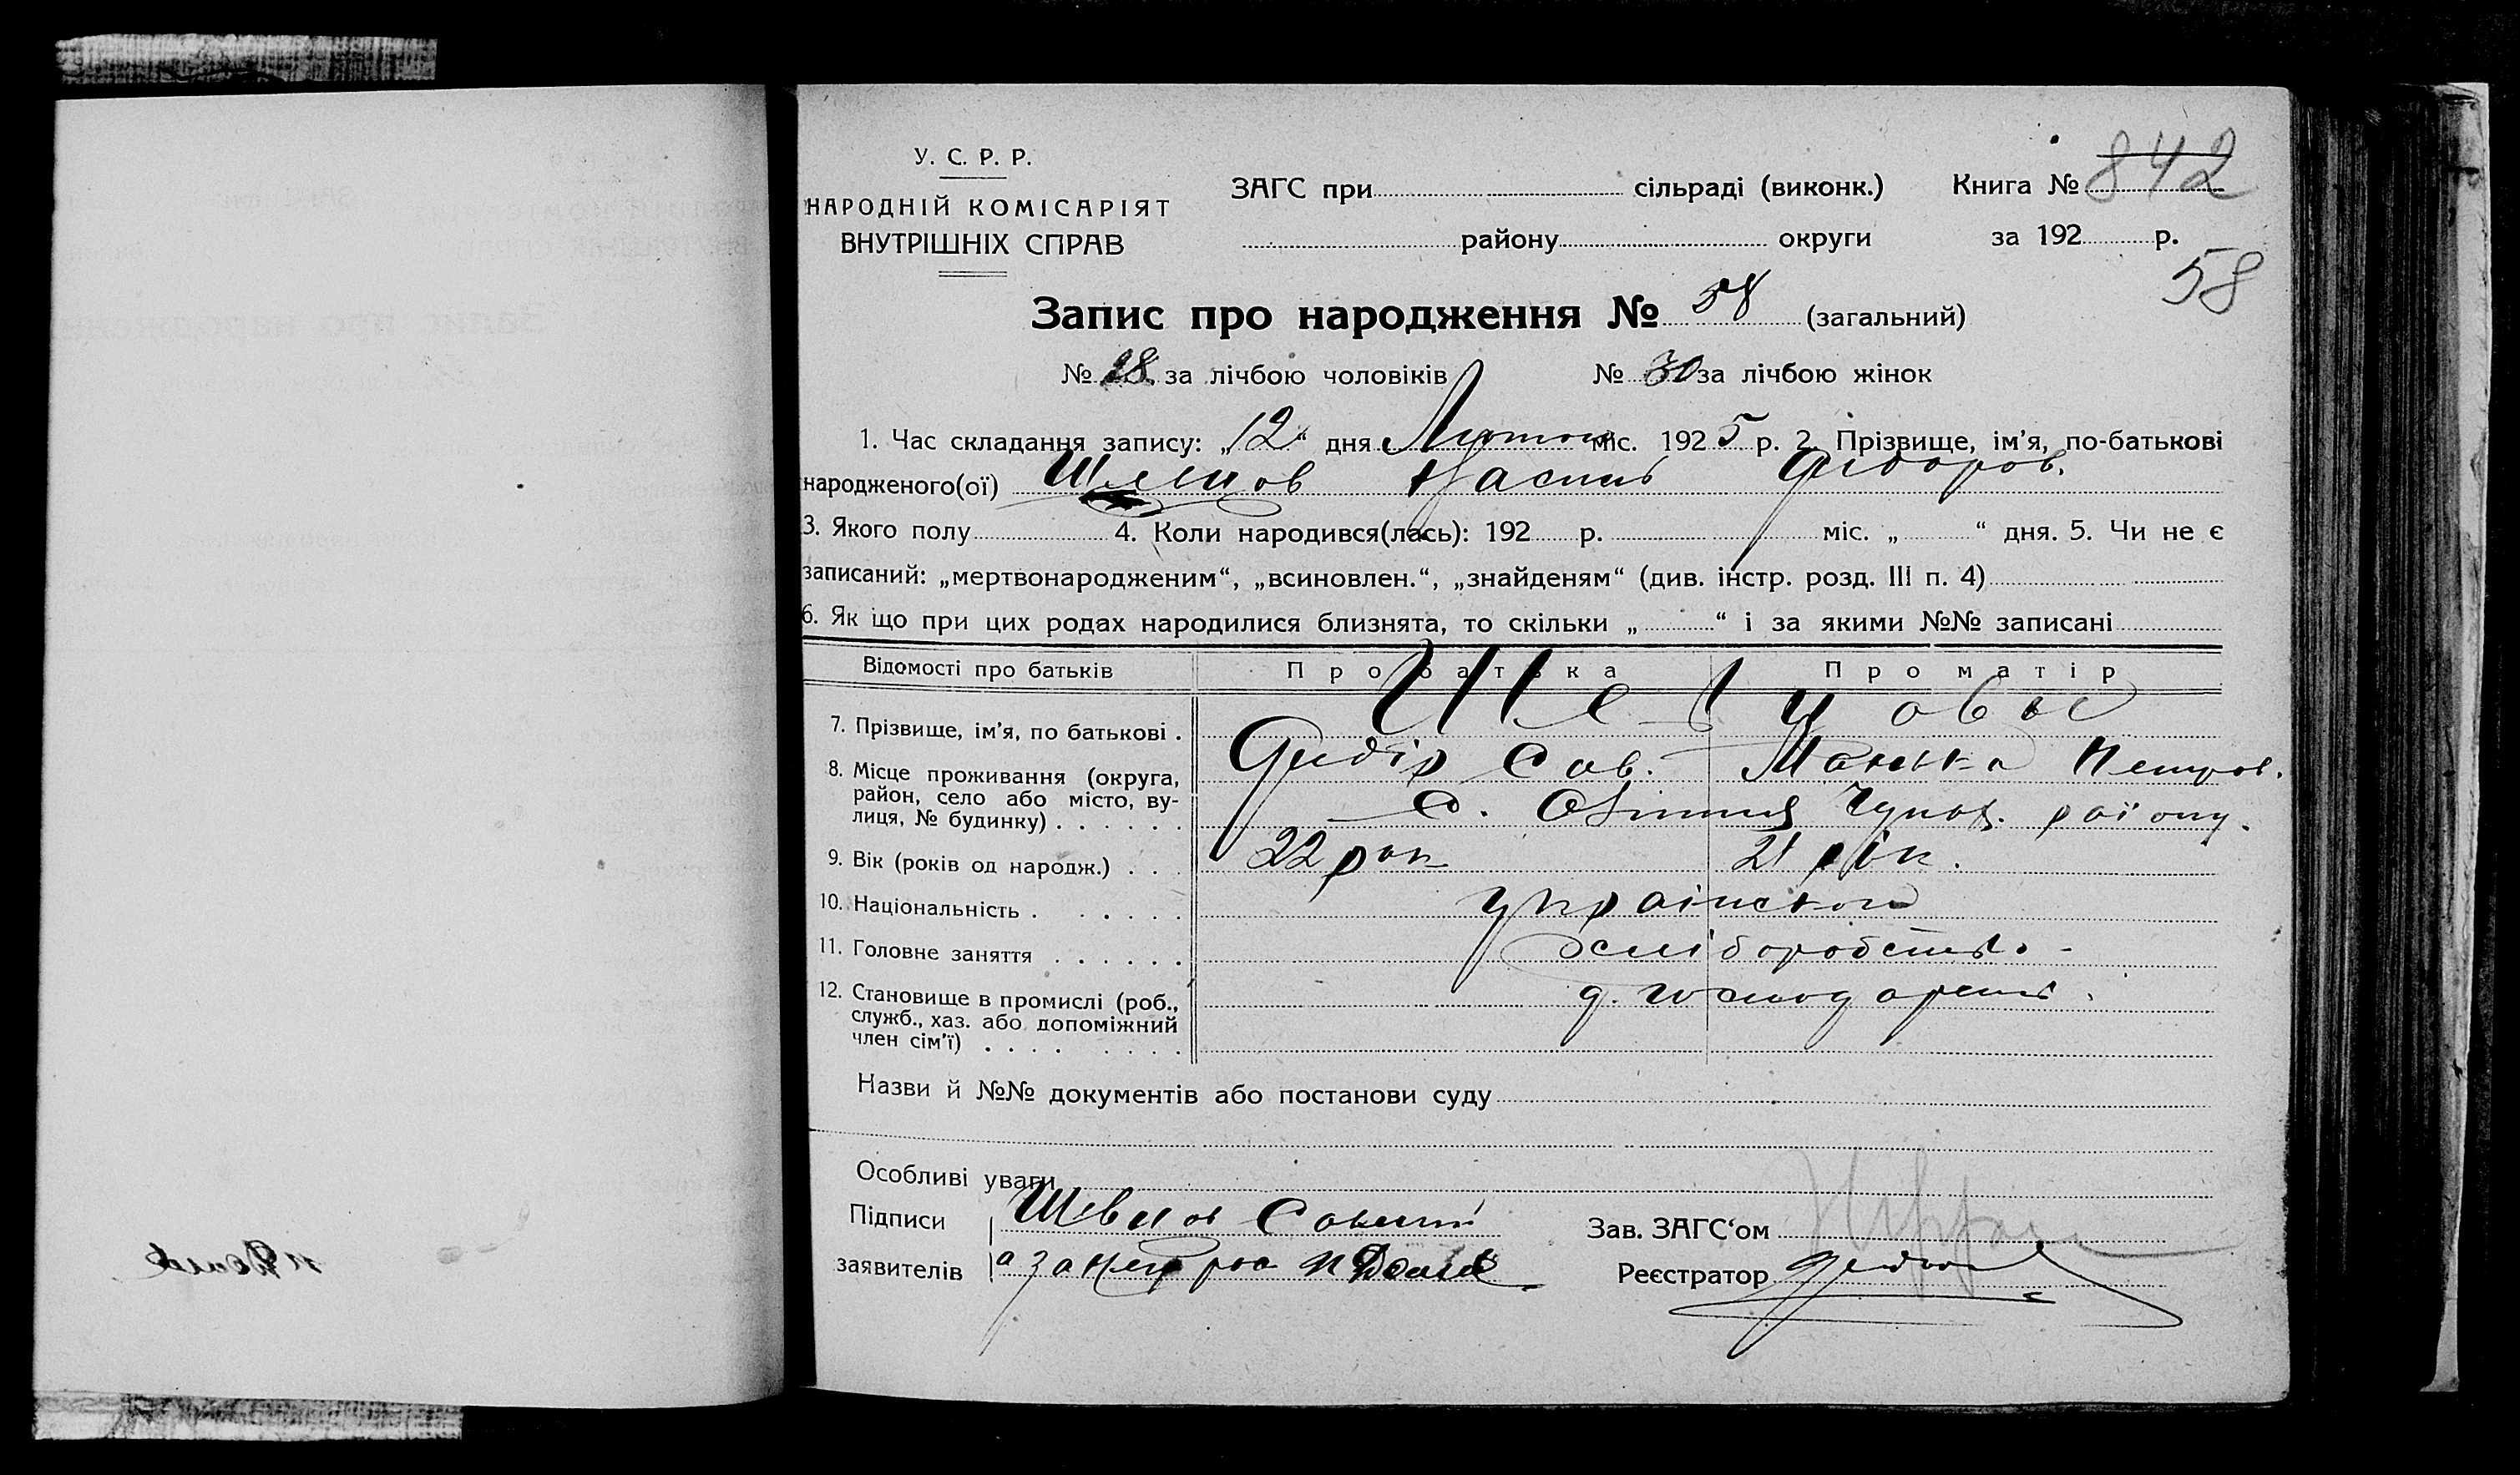 У. С. Р. Р.
НАРОДНІЙ КОМІСАРІЯТ
ВНУТРІШНІХ СПРАВ
ЗАГС при сільраді (виконк.) Книга № 842
району округи за 192 р.
58
Запис про народження № 58 (загальний)
№ 28 за лічбою чоловіків № 30 за лічбою жінок
1. Час складання запису: „12“ дня Лютого міс. 1925 р. 2. Прізвище, ім'я, по-батькові
народженого(ої) Федоров.
3. Якого полу 4. Коли народився(лась): 192 р. міс. „ “ дня. 5. Чи не є
записаний: „мертвонародженим“, „всиновлен.“, „знайденям“ (див. інстр. розд. III п. 4)
6. Як що при цих родах народилися близнята, то скільки „ “ і за якими №№ записані
Відомості про батьків Про батька Про матір
7. Прізвище, ім'я, по батькові .
Сав. Петров.
8. Місце проживання (округа,
район, село або місто, ву-
лиця, № будинку) . . . . . .
с. району.
9. Вік (років од народж.) . . . 22 рок 21 рік.
10. Національність . . . . . . українсько
11. Головне заняття . . . . . . хліборобство -
12. Становище в промислі (роб.,
служб., хаз. або допоміжний
член сім'ї) . . . . . . . .
Назви й №№ документів або постанови суду
Особливі уваги
Підписи Швецов Зав. ЗАГС‘ом
заявителів а за Реєстратор